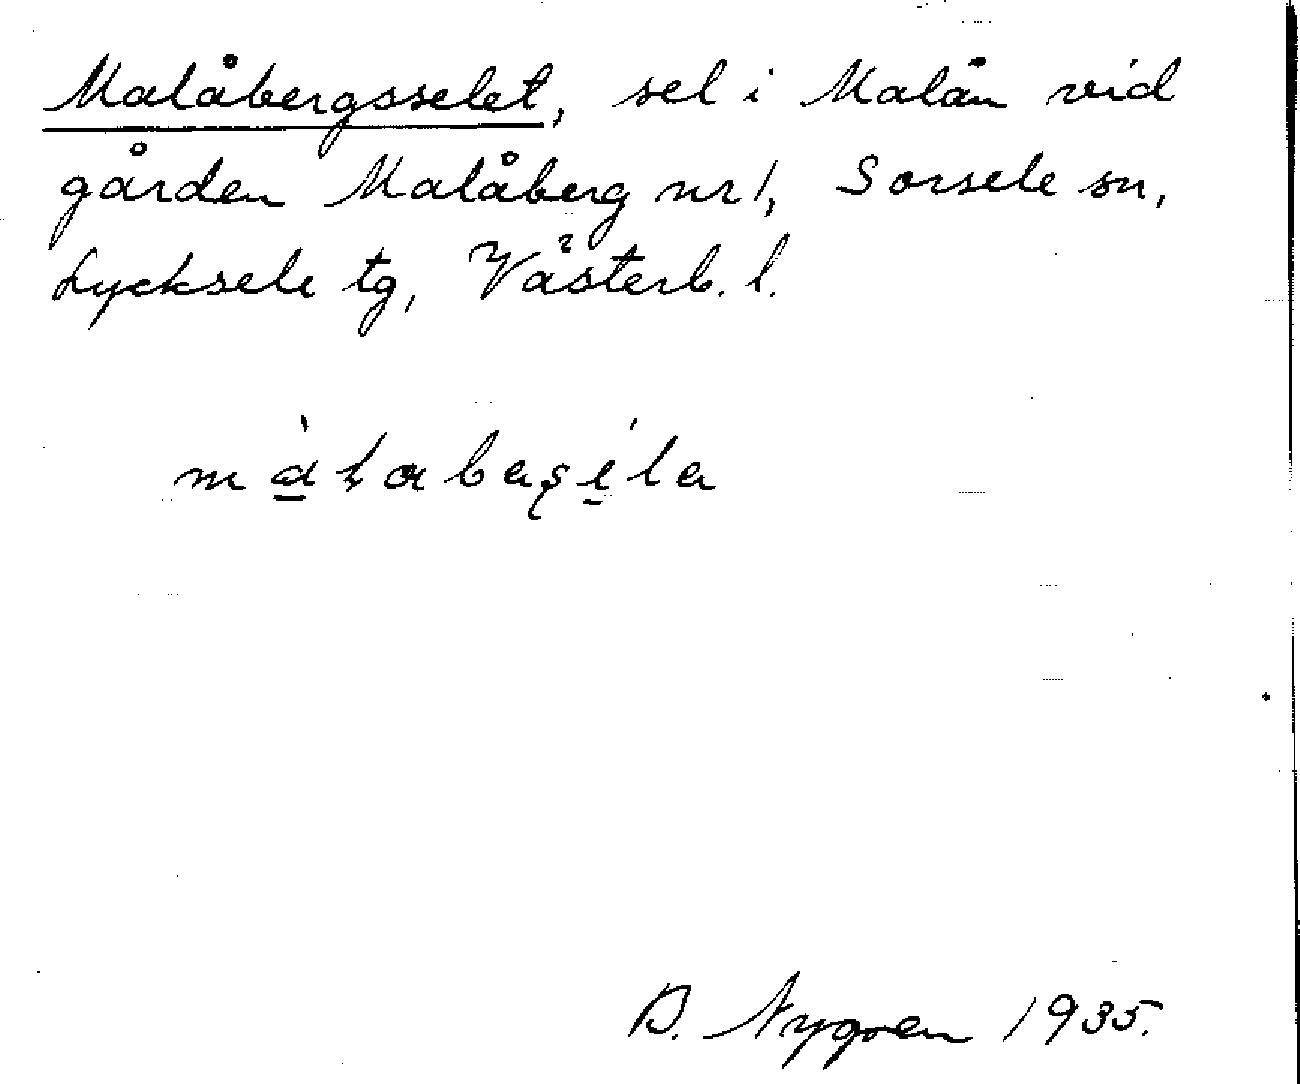 Malåbergsselet, sel i Malån vid
gården Malåberg nr 1, Sorsele sn,
Lycksele tg, Västerb. l.
B. Nygren 1935.